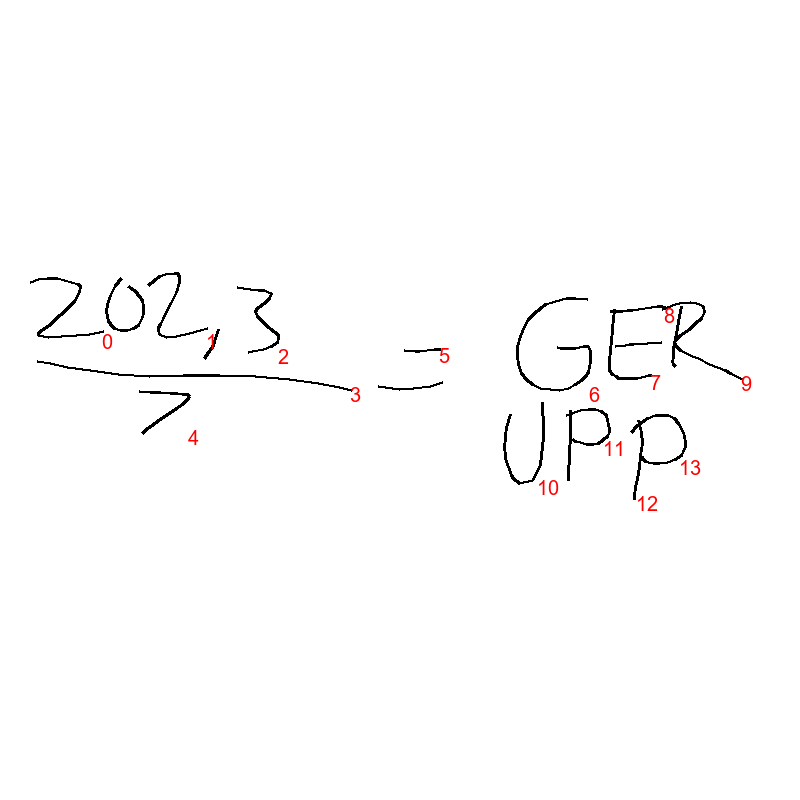 202,3
7
= GER
UPP
0
1
2
3
4
5
6
7
8
9
10
11
12
13